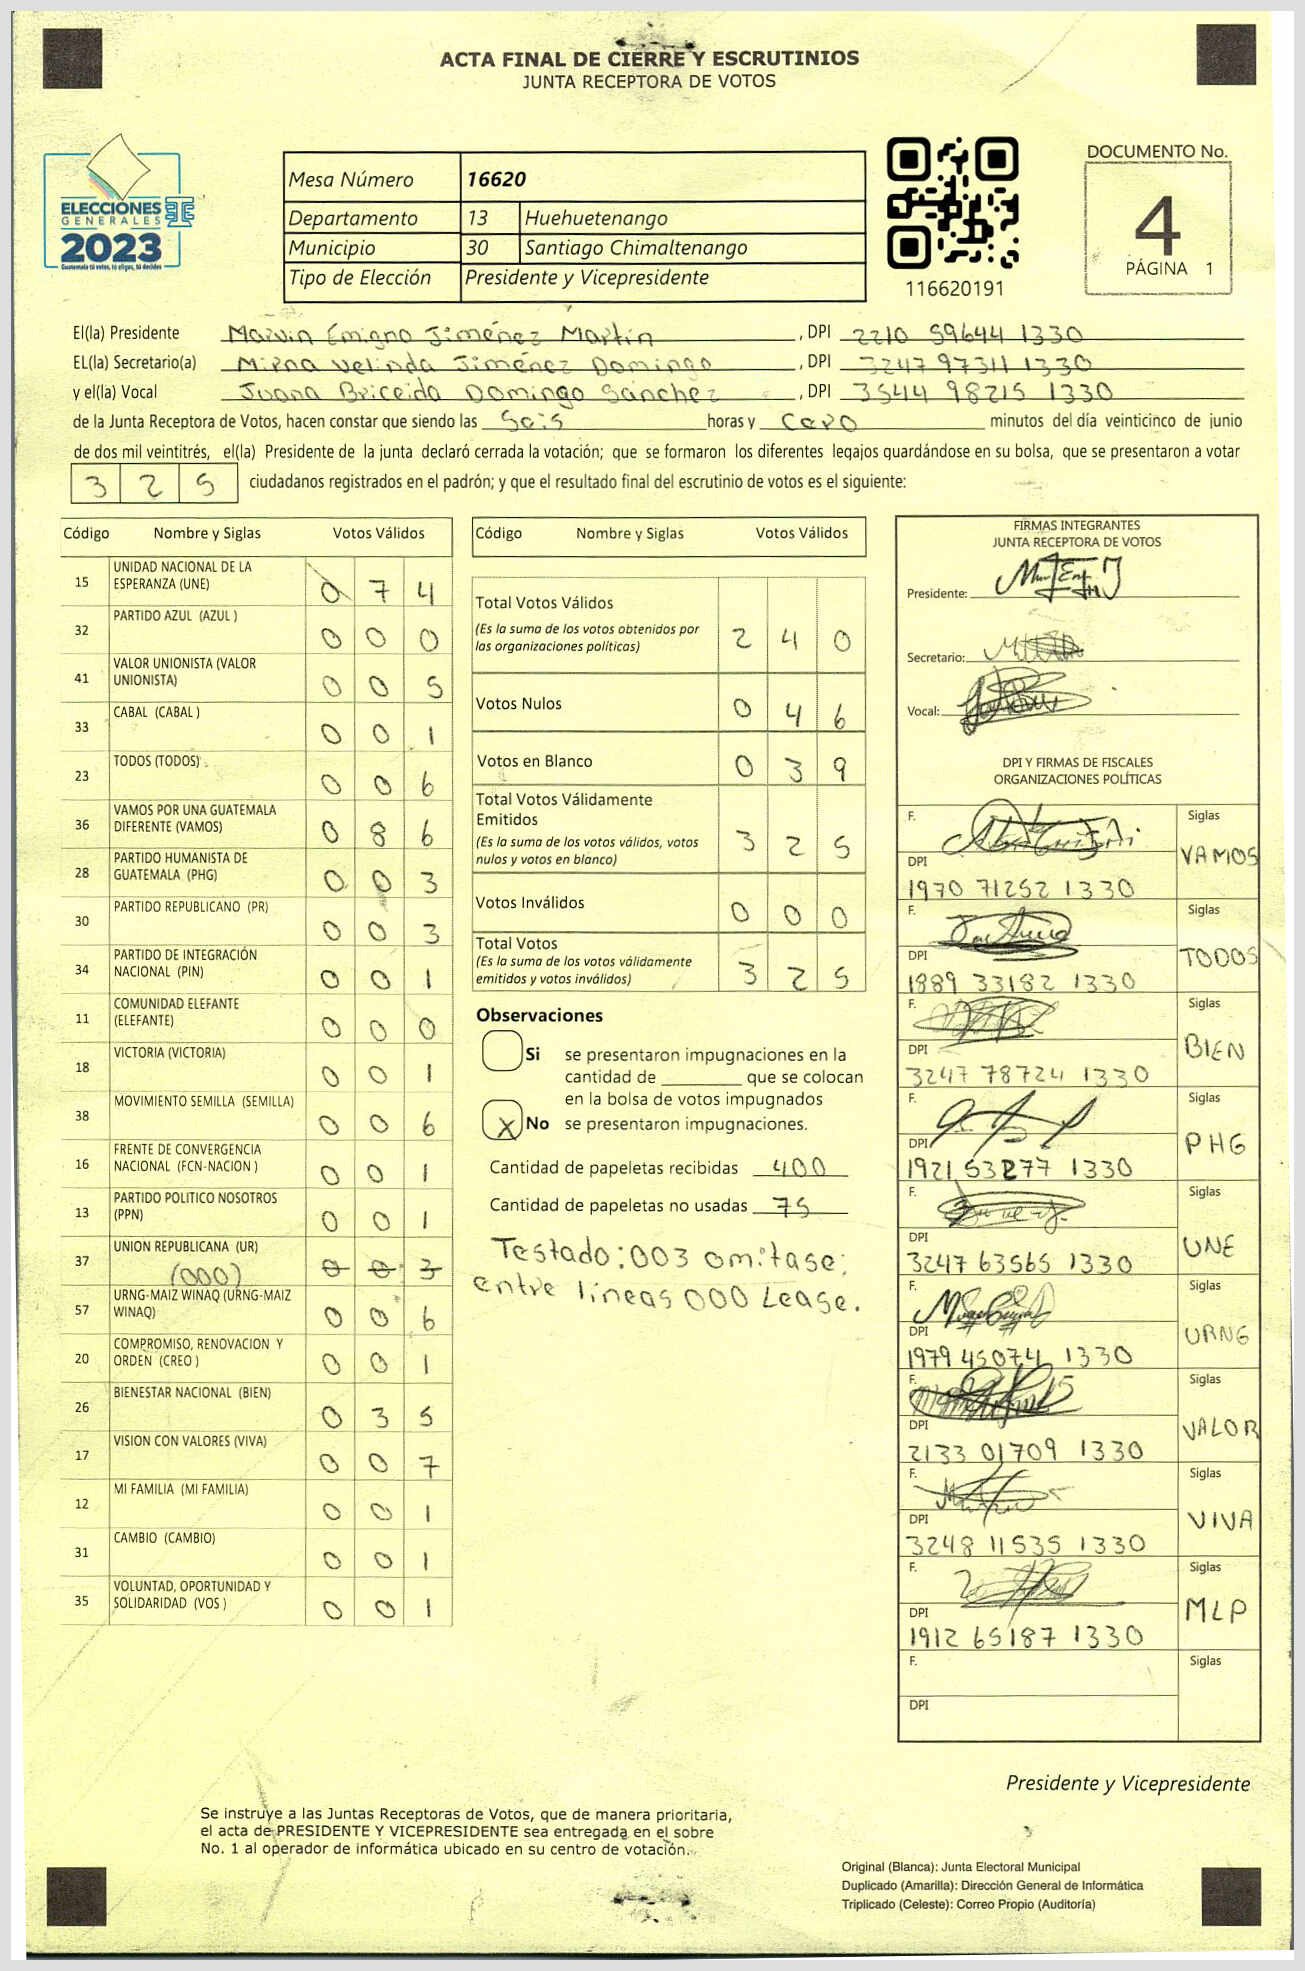 ACTA FINAL DE CIERRE Y ESCRUTINIOS
JUNTA RECEPTORA DE VOTOS
ELECCIONES
GENERALES
2023
Guatemala tú votas, tú eliges, tú decides
Mesa Número 16620
Departamento 13 Huehuetenango
Municipio 30 Santiago Chimaltenango
Tipo de Elección Presidente y Vicepresidente
116620191
DOCUMENTO No.
4
PÁGINA 1
El(la) Presidente Marvin Emigno Jiménez Martín, DPI 2210 59644 1330
EL(la) Secretario(a) Mirna Velinda Jiménez Domingo, DPI 3247 97311 1330
y el(la) Vocal Juana Briceida Domingo Sánchez, DPI 3544 98215 1330
de la Junta Receptora de Votos, hacen constar que siendo las Seis horas y Cero minutos del día veinticinco de junio
de dos mil veintitrés, el(la) Presidente de la junta declaró cerrada la votación; que se formaron los diferentes legajos guardándose en su bolsa, que se presentaron a votar
3 2 5 ciudadanos registrados en el padrón; y que el resultado final del escrutinio de votos es el siguiente:
Código Nombre y Siglas Votos Válidos
15 UNIDAD NACIONAL DE LA
ESPERANZA (UNE) 0 7 4
32 PARTIDO AZUL (AZUL ) 0 0 0
41 VALOR UNIONISTA (VALOR
UNIONISTA) 0 0 5
33 CABAL (CABAL ) 0 0 1
23 TODOS (TODOS) 0 0 6
36 VAMOS POR UNA GUATEMALA
DIFERENTE (VAMOS) 0 8 6
28 PARTIDO HUMANISTA DE
GUATEMALA (PHG) 0 0 3
30 PARTIDO REPUBLICANO (PR) 0 0 3
34 PARTIDO DE INTEGRACIÓN
NACIONAL (PIN) 0 0 1
11 COMUNIDAD ELEFANTE
(ELEFANTE) 0 0 0
18 VICTORIA (VICTORIA) 0 0 1
38 MOVIMIENTO SEMILLA (SEMILLA) 0 0 6
16 FRENTE DE CONVERGENCIA
NACIONAL (FCN-NACION ) 0 0 1
13 PARTIDO POLITICO NOSOTROS
(PPN) 0 0 1
37 UNION REPUBLICANA (UR) 0 0 3
(000)
57 URNG-MAIZ WINAQ (URNG-MAIZ
WINAQ) 0 0 6
20 COMPROMISO, RENOVACION Y
ORDEN (CREO ) 0 0 1
26 BIENESTAR NACIONAL (BIEN) 0 3 5
17 VISION CON VALORES (VIVA) 0 0 7
12 MI FAMILIA (MI FAMILIA) 0 0 1
31 CAMBIO (CAMBIO) 0 0 1
35 VOLUNTAD, OPORTUNIDAD Y
SOLIDARIDAD (VOS ) 0 0 1
Código Nombre y Siglas Votos Válidos
Total Votos Válidos
(Es la suma de los votos obtenidos por
las organizaciones políticas) 2 4 0
Votos Nulos 0 4 6
Votos en Blanco 0 3 9
Total Votos Válidamente
Emitidos
(Es la suma de los votos válidos, votos
nulos y votos en blanco) 3 2 5
Votos Inválidos 0 0 0
Total Votos
(Es la suma de los votos válidamente
emitidos y votos inválidos) 3 2 5
Observaciones
Si se presentaron impugnaciones en la
cantidad de ________ que se colocan
en la bolsa de votos impugnados
X No se presentaron impugnaciones.
Cantidad de papeletas recibidas 400
Cantidad de papeletas no usadas 75
Testado: 003 omitase;
entre líneas 000 Lease.
FIRMAS INTEGRANTES
JUNTA RECEPTORA DE VOTOS
Presidente:
Secretario:
Vocal:
DPI Y FIRMAS DE FISCALES
ORGANIZACIONES POLÍTICAS
F. Siglas
VAMOS
DPI
1970 71252 1330
F. Siglas
TODOS
DPI
1889 33182 1330
F. Siglas
BIEN
DPI
3247 78724 1330
F. Siglas
PHG
DPI
1921 53277 1330
F. Siglas
UNE
DPI
3247 63565 1330
F. Siglas
URNG
DPI
1979 45074 1330
F. Siglas
VALOR
DPI
2133 01709 1330
F. Siglas
VIVA
DPI
3248 11535 1330
F. Siglas
MLP
DPI
1912 65187 1330
F. Siglas
DPI
Presidente y Vicepresidente
Se instruye a las Juntas Receptoras de Votos, que de manera prioritaria,
el acta de PRESIDENTE Y VICEPRESIDENTE sea entregada en el sobre
No. 1 al operador de informática ubicado en su centro de votación.
Original (Blanca): Junta Electoral Municipal
Duplicado (Amarilla): Dirección General de Informática
Triplicado (Celeste): Correo Propio (Auditoría)